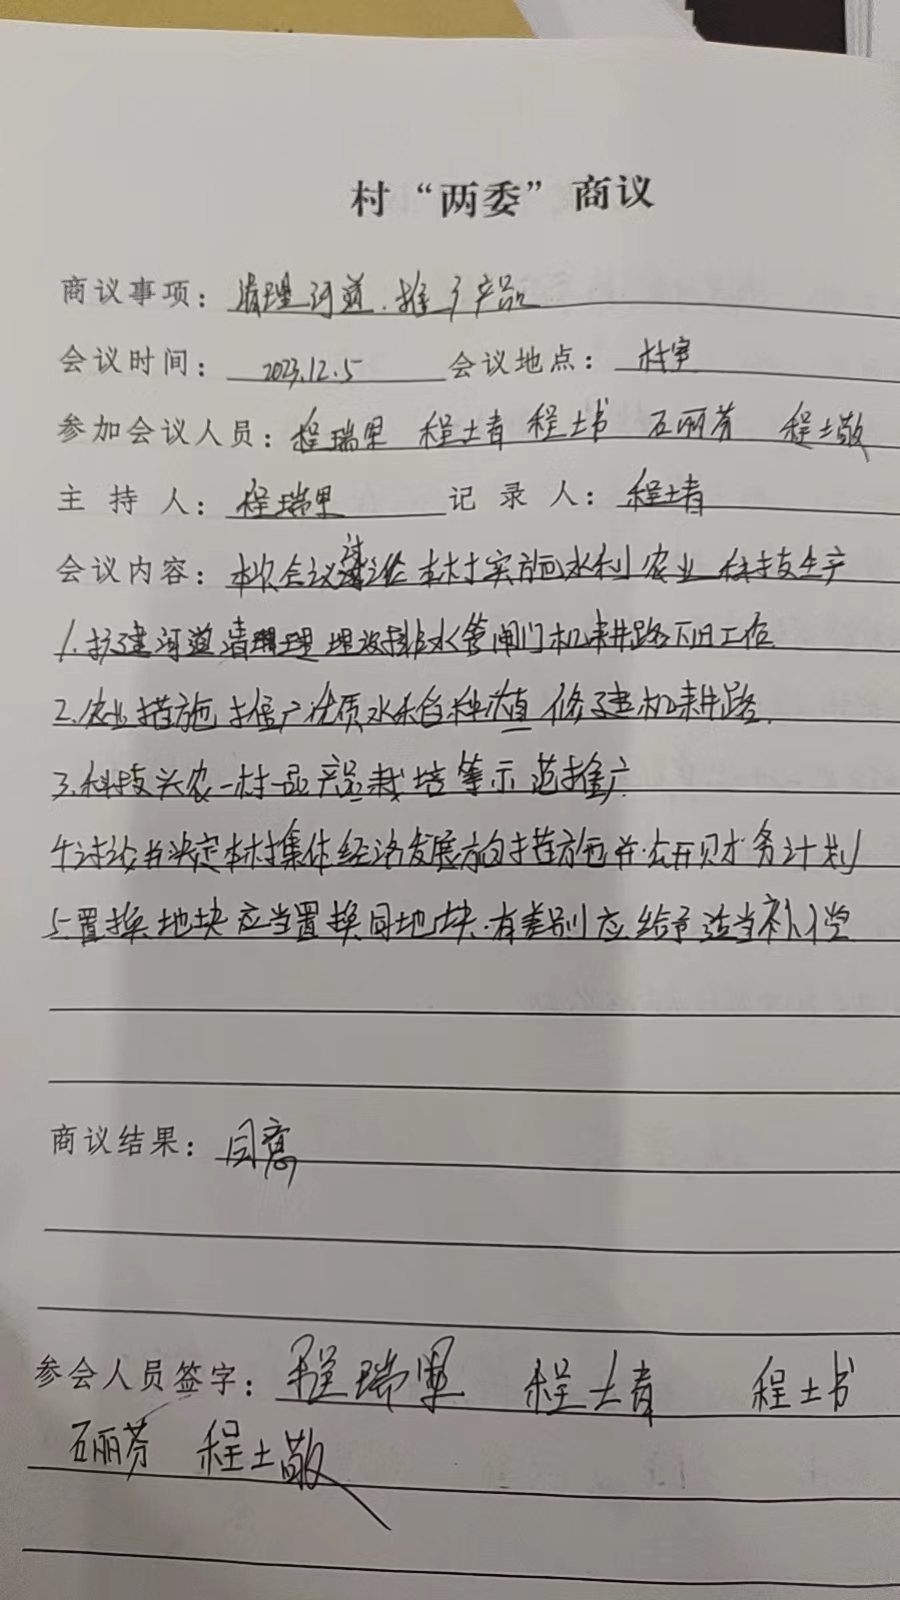 村“两委”商议
商议事项：清理河道.推广产品
会议时间：2023.12.5 会议地点：村室
参加会议人员：程瑞里 程士青 程士书 石丽芬 程士敬
主持人：程瑞里 记录人：程士青
会议内容：本次会议讨论本村实施水利农业科技生产
1.扩建河道清理 埋设排水管闸门机耕路下田工作
2.农业措施 推广优质水稻种植 修建机耕路.
3.科技兴农一村一品产品栽培等示范推广
4.讨论书决定本村集体经济发展方向措施并.公开财务计划
5.置换地块应当置换同地块.有差别应给予适当补偿
商议结果：同意
参会人员签字：程瑞里 程士青 程士书
石丽芬 程士敬